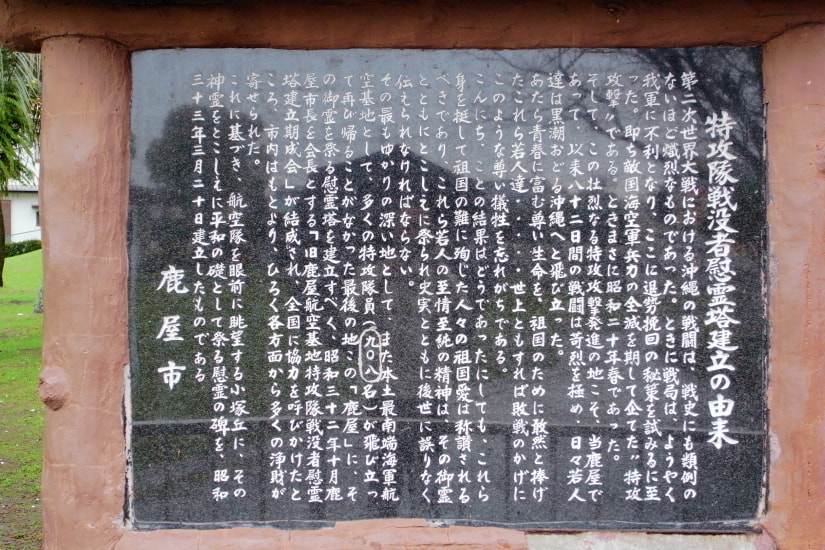 特攻隊戦没者慰霊塔建立の由来
第二次世界大戦における沖縄の戦闘は、戦史にも類例の
ないほど熾烈なものであった。ときに戦局は、ようやく
我軍に不利となり、ここに退勢挽回の秘策を試みるに至
った。即ち敵国海空軍兵力の全滅を期して企てた〃特攻
攻撃〃である。ときまさに昭和二十年春であった。
そして、この壮烈なる特攻攻撃発進の地こそ、当鹿屋で
あって、以来八十二日間の戦闘は苛烈を極め、日々若人
達は黒潮おどる沖縄へと飛び立った。
あたら青春に富む尊い生命を、祖国のために敢然と捧げ
たこれら若人達・・・・世上ともすれば敗戦のかげに
このような尊い犠牲を忘れがちである。
こんにち、ことの結果はどうであったにしても、これら
身を挺して祖国の難に殉じた人々の祖国愛は称讃される
べきであり、これら若人の至情至純の精神は、その御霊
とともにとこしえに祭られ史実とともに後世に誤りなく
伝えられなければならない。
その最もゆかりの深い地として、また本土最南端海軍航
空基地として、多くの特攻隊員(九〇八名)が飛び立っ
て再び帰ることがなかった最後の地この「鹿屋」に、そ
の御霊を祭る慰霊塔を建立すべく、昭和三十二年十月鹿
屋市長を会長とする「旧鹿屋航空基地特攻隊戦没者慰霊
塔建立期成会」が結成され、全国に協力を呼びかけたと
ころ、市内はもとより、ひろく各方面から多くの浄財が
寄せられた。
これに基づき、航空隊を眼前に眺望する小塚丘に、その
神霊をとこしえに平和の礎として祭る慰霊の碑を、昭和
三十三年三月二十日建立したものである
鹿屋市